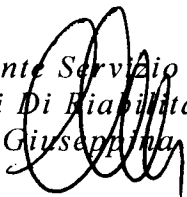 nte Servizio
i Di Riabilita
Giuseppina